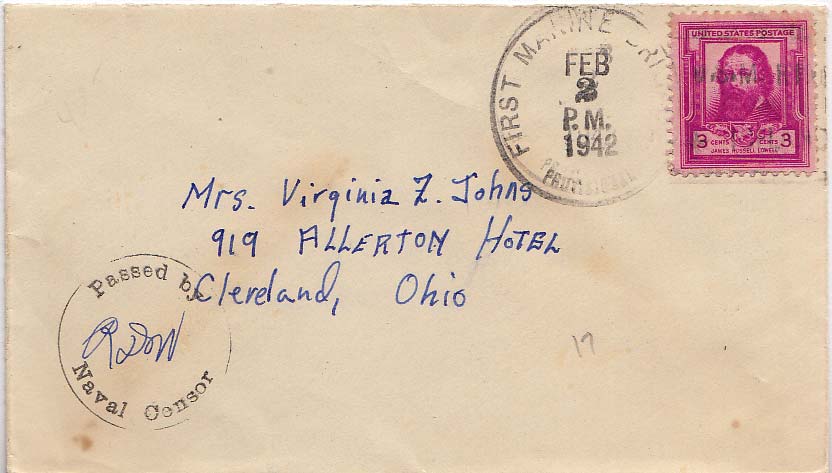 FIRST MARINE
FEB
2
P.M.
1942
PROVISIONAL
UNITED STATES POSTAGE
3 CENTS CENTS 3
JAMES RUSSELL LOWELL
Mrs. Virginia Z. Johns
919 ALLERTON HOTEL
Cleveland, Ohio
Passed by
RDW
Naval Censor
17